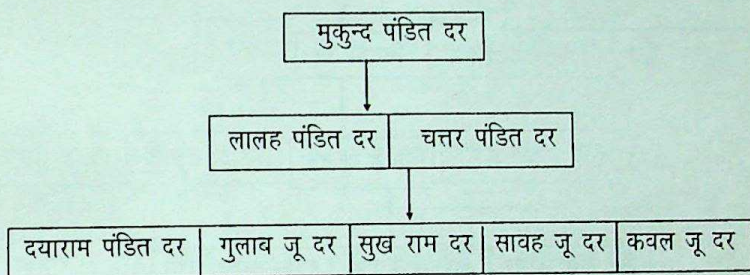 मुकुन्द पंडित दर
लालह पंडित दर चत्तर पंडित दर
दयाराम पंडित दर गुलाब जू दर सुख राम दर सावह जू दर कवल जू दर